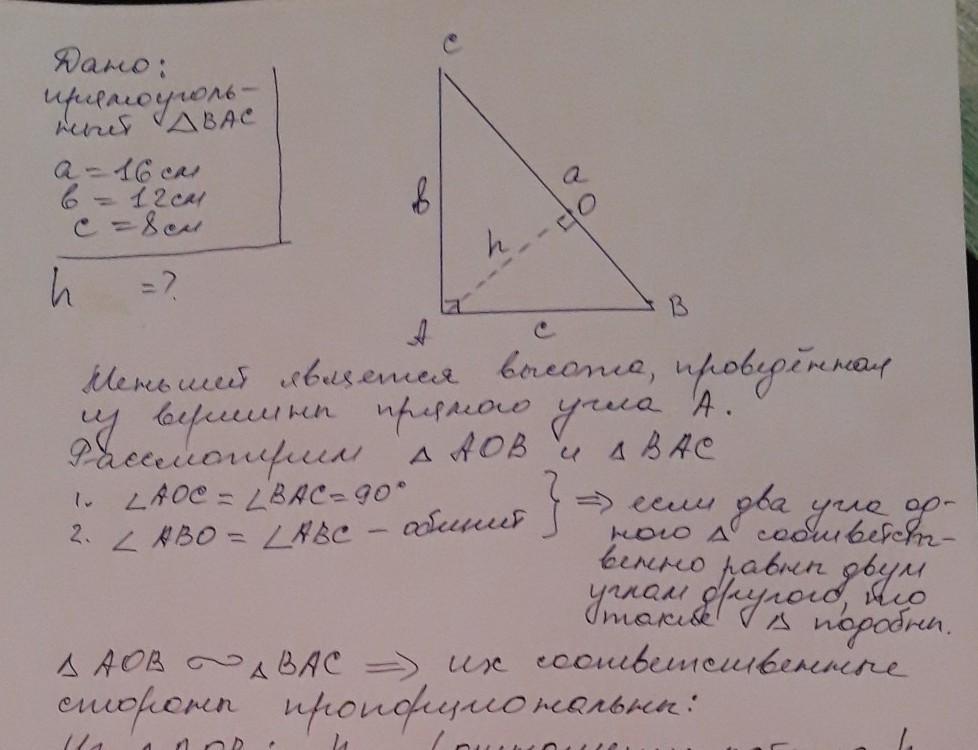 Дано:
прямоуголь-
ный △BAC
a = 16 см
в = 12 см
c = 8 см
h = ?
C
в
a
O
h
A
c
B
Меньшей является высота, проведённая
из вершины прямого угла A.
Рассмотрим △ AOB и △ BAC
1. ∠AOC = ∠BAC = 90°
2. ∠ABO = ∠ABC – общий
} => если два угла од-
ного △ соответст-
венно равны двум
углам другого, то
такие △ подобны.
△ AOB ∼ △BAC => их соответственные
стороны пропорциональны: